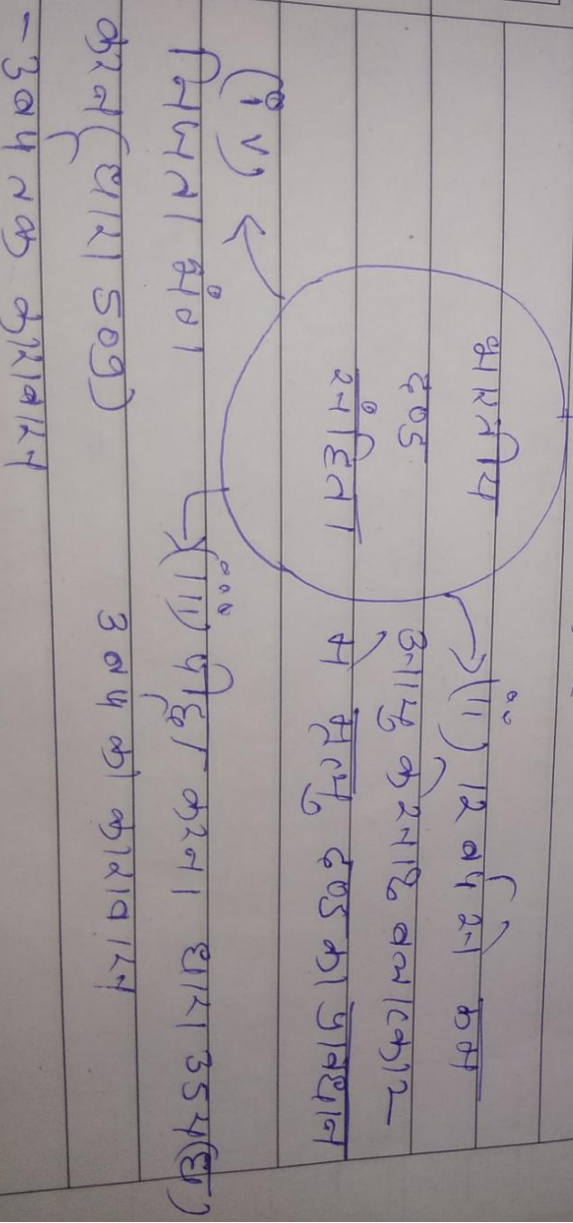 भारतीय
दण्ड
संहिता
(ii) 12 वर्ष से कम
आयु के साथ बलात्कार
में मृत्यु दण्ड का प्रावधान
(iii) पीछा करना धारा 354(घ)
3 वर्ष का कारावास
(iv)
निजता भंग
करने (धारा 509)
- 3 वर्ष तक कारावास